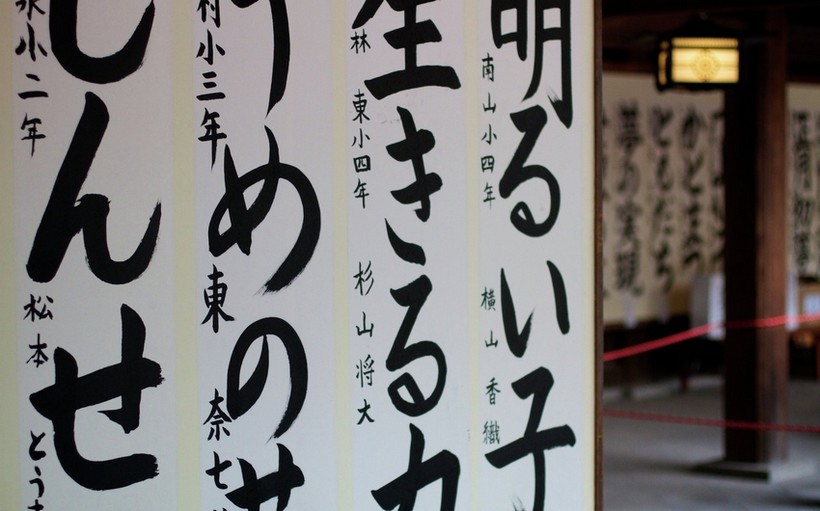 明るい子
南山小四年 横山香織
生きる力
林東小四年 杉山将大
うめのせ
村小三年 東 奈七
しんせ
小二年 松本 とう
かどまつ
ともだち
夢の実現